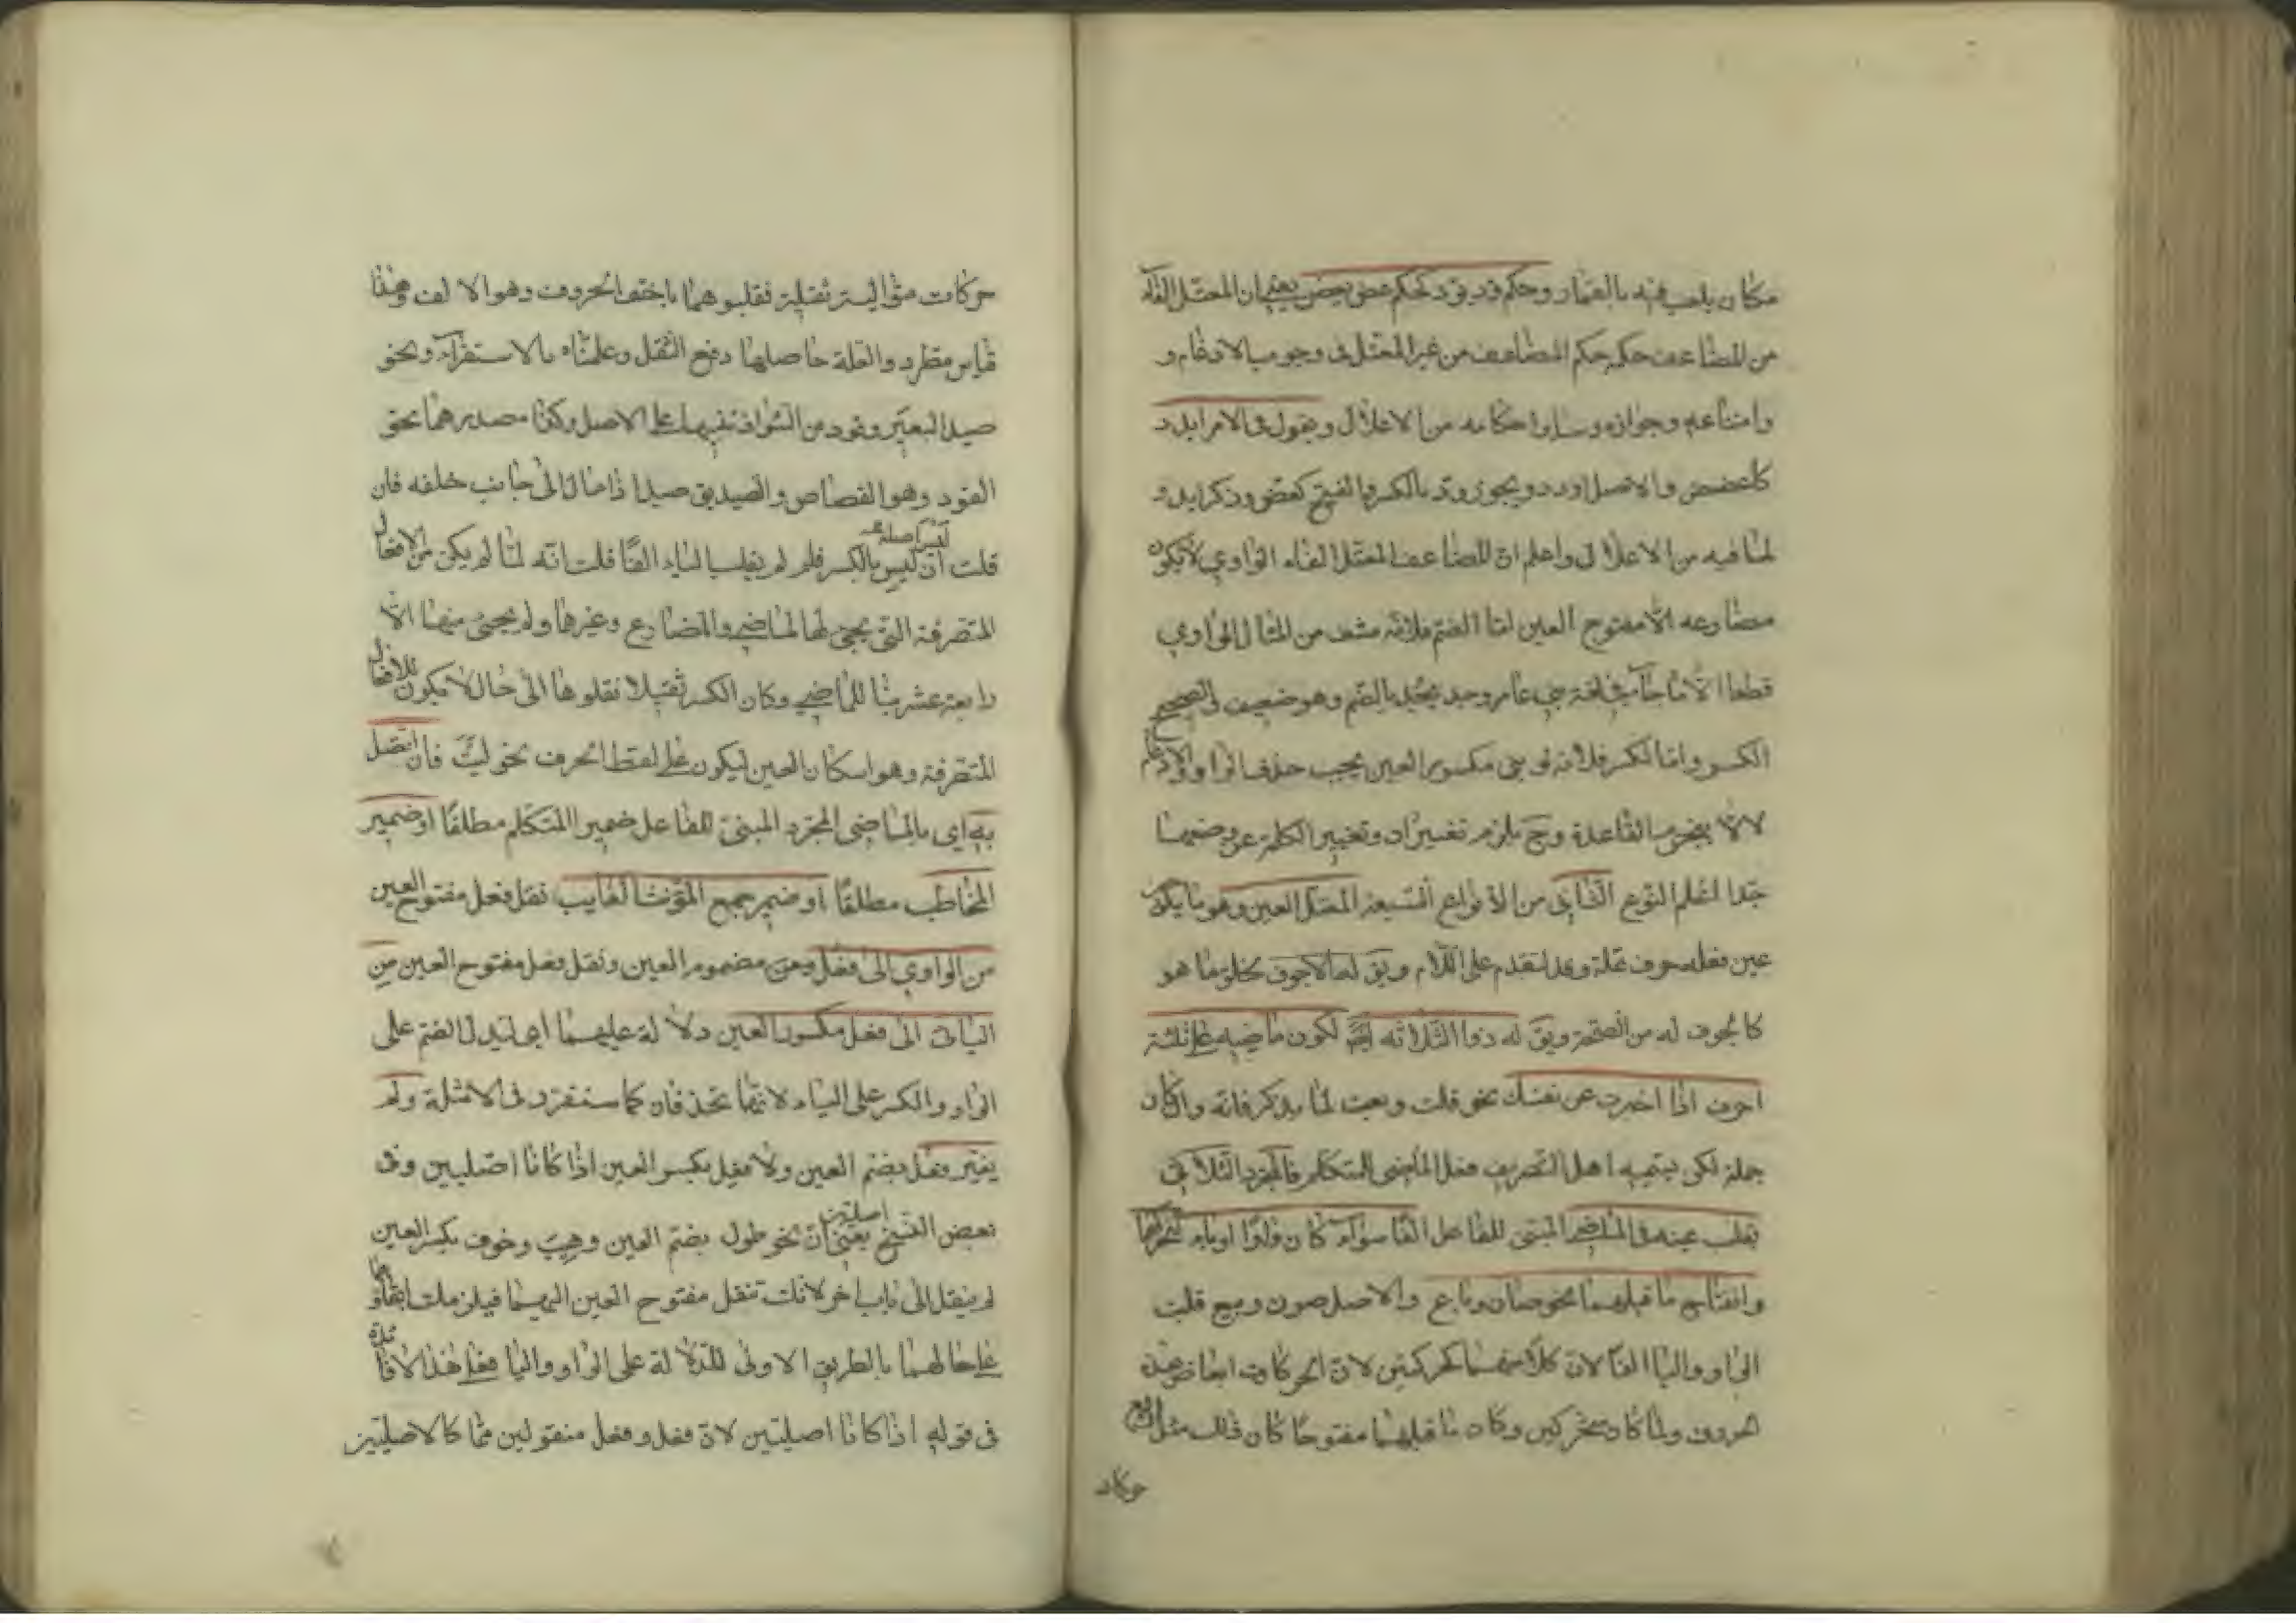 مكان يلعب فيه بالقمار وحكم وديود كحكم عض يعض يعني ان المعتل الفاء
من المضاعف حكمه حكم المضاعف من غير المعتل في وجوب الادغام و
وامتناعه وجوازه وساير احكامه من الاعلال وتقول في الامر ايدد
كاعضض والاصل اودد ويجوز ود بالكسر والفتح كعض وذكر ايدد
لما فيه من الاعلال واعلم ان المضاعف المعتل الفاء الواوي لا يكون
مضارعه الا مفتوح العين اما الضم فلانه منتف من المثال الواوي
قطعا الا ما جاء في لغة بني عامر وجد يجد بالضم وهو ضعيف في الصحيح
الكسر واما الكسر فلانه لو بني مكسور العين يجب حذف الواو والادغام
لئلا ينخرم القاعدة وح يلزم تغييران وتغيير الكلمة عن وضعها
جدا اعلم النوع الثاني من الانواع السبعة المعتل العين وهو ما يكون
عين فعله حرف علة وقد لتقدم على اللام ويق له الاجوف لخلو ما هو
كالجوف له من الصحة ويق له ذوا الثلاثة ايضا لكون ماضيه على ثلثة
احرف اذا اخبرت عن نفسك نحو قلت وبعت لما يذكر فانه وان كان
جملة لكن يسميه اهل التصريف فعل الماضي المتكلم فالمجرد الثلاثي
تقلب عينه في الماضي المبني للفاعل الفا سواء كان واوا او ياء لتحركهما
وانفتاح ما قبلهما نحو صان وباع والاصل صون وبيع قلبت
الواو واليا الفا لان كلا منهما كحركتين لان الحركات ابعاض هذه
الحروف ولما كانا متحركين وكان ما قبلهما مفتوحا كان ذلك مثل اربع
حركات
حركات متوالية ثقيلة فقلبوهما باخف الحروف وهو الالف وهذا
قياس مطرد والعلة حاصلها دفع الثقل وعلمناه بالاستقراء ونحو
صيد البعير وقود من الشواذ تنبيها على الاصل وكذا مصدرهما نحو
القود وهو القصاص والصيد يق صيد اذا مال الى جانب خلفه فان
ليس اصله
قلت ان ليس بالكسر فلم لم يقلب الياء الفا قلت انه لما لم يكن من الافعال
المتصرفة التي يجيء لها الماضي والمضارع وغيرها ولم يجيء منها الا
اربعة عشر بناء للماضي وكان الكسر ثقيلا نقلوها الى حال لا يكون للافعال
المتصرفة وهو اسكان العين ليكون على لفظ الحرف نحو ليت فان اتصل
به اي بالماضي المجرد المبني للفاعل ضمير المتكلم مطلقا او ضمير
المخاطب مطلقا او ضمير جمع المؤنث الغايب نقل فعل مفتوح العين
من الواوي الى فعل مضموم العين ونقل فعل مفتوح العين من
اليائي الى فعل مكسور العين دلالة عليهما اي ليدل الضم على
الواو والكسر على الياء لانهما تحذفان كما ستقرر في الامثلة ولم
يغير فعل بضم العين ولا فعل بكسر العين اذا كانا اصليين وفي
بعض النسخ اصليتين يعني ان نحو طول بضم العين وهيب وخوف بكسر العين
لم ينقل الى باب اخر لانك تنقل مفتوح العين اليهما فيلزمك ابقاؤهما
على حالهما بالطريق الاولى للدلالة على الواو واليا فعلى هذا لا فائدة
في قوله اذا كانا اصليتين لان فعل وفعل منقولين هما كالاصليتين